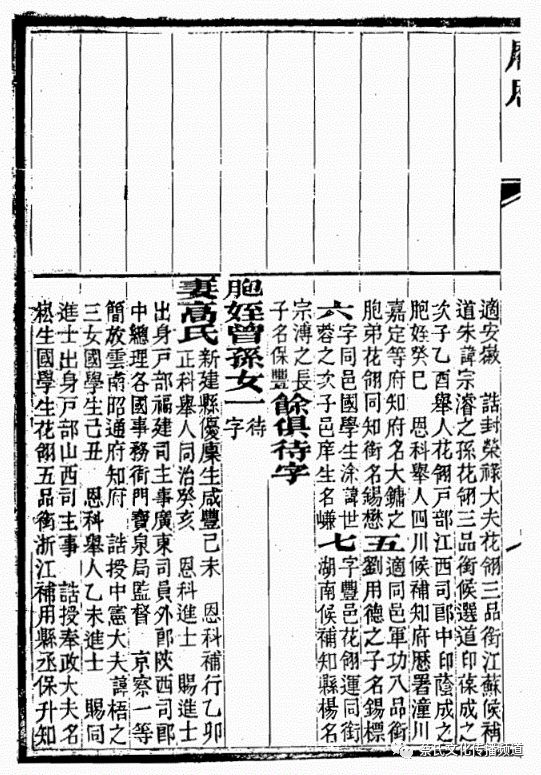 適安徽 誥封榮祿大夫花翎三品銜江蘇候補
道朱諱宗濬之孫花翎三品銜候選道印葆成之
次子乙酉舉人花翎戶部江西司郎中印蔭成之
胞姪癸巳 恩科舉人四川候補知府歷署潼川
嘉定等府知府名大鏞之
胞弟花翎同知銜名錫懋
五
適同邑軍功八品銜
劉用德之子名錫標
六
字同邑國學生涂諱世
蓉之次子邑庠生名嵰
七
字豐邑花翎運同銜
湖南候補知縣楊名
宗溥之長
子名保豐
餘俱待字
胞姪曾孫女一
待字
妻高氏
新建縣優廩生咸豐己未 恩科補行乙卯
正科舉人同治癸亥 恩科進士 賜進士
出身戶部福建司主事廣東司員外郎陝西司郎
中總理各國事務衙門寶泉局監督 京察一等
簡放雲南昭通府知府 誥授中憲大夫諱梧之
三女國學生己丑 恩科舉人乙未進士 賜同
進士出身戶部山西司主事 誥授奉政大夫名
崧生國學生花翎五品銜浙江補用縣丞保升知
氏文化传播频道